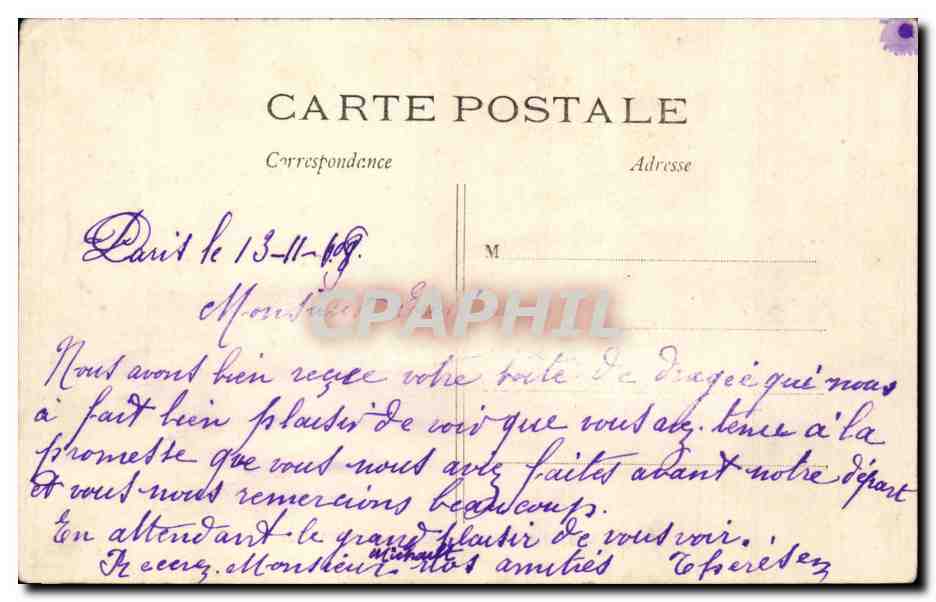 CARTE POSTALE
Correspondance
Adresse
Paris le 13-11-
M
Monsieur
CPAPHIL
Nous avons bien reçue votre boîte de dragée qui nous
à fait bien plaisir de voir que vous avez tenue à la
promesse que vous nous avez faites avant notre départ
et vous nous remercions beaucoup.
En attendant le grand plaisir de vous voir.
Michault
Recevez Monsieur nos amitiés